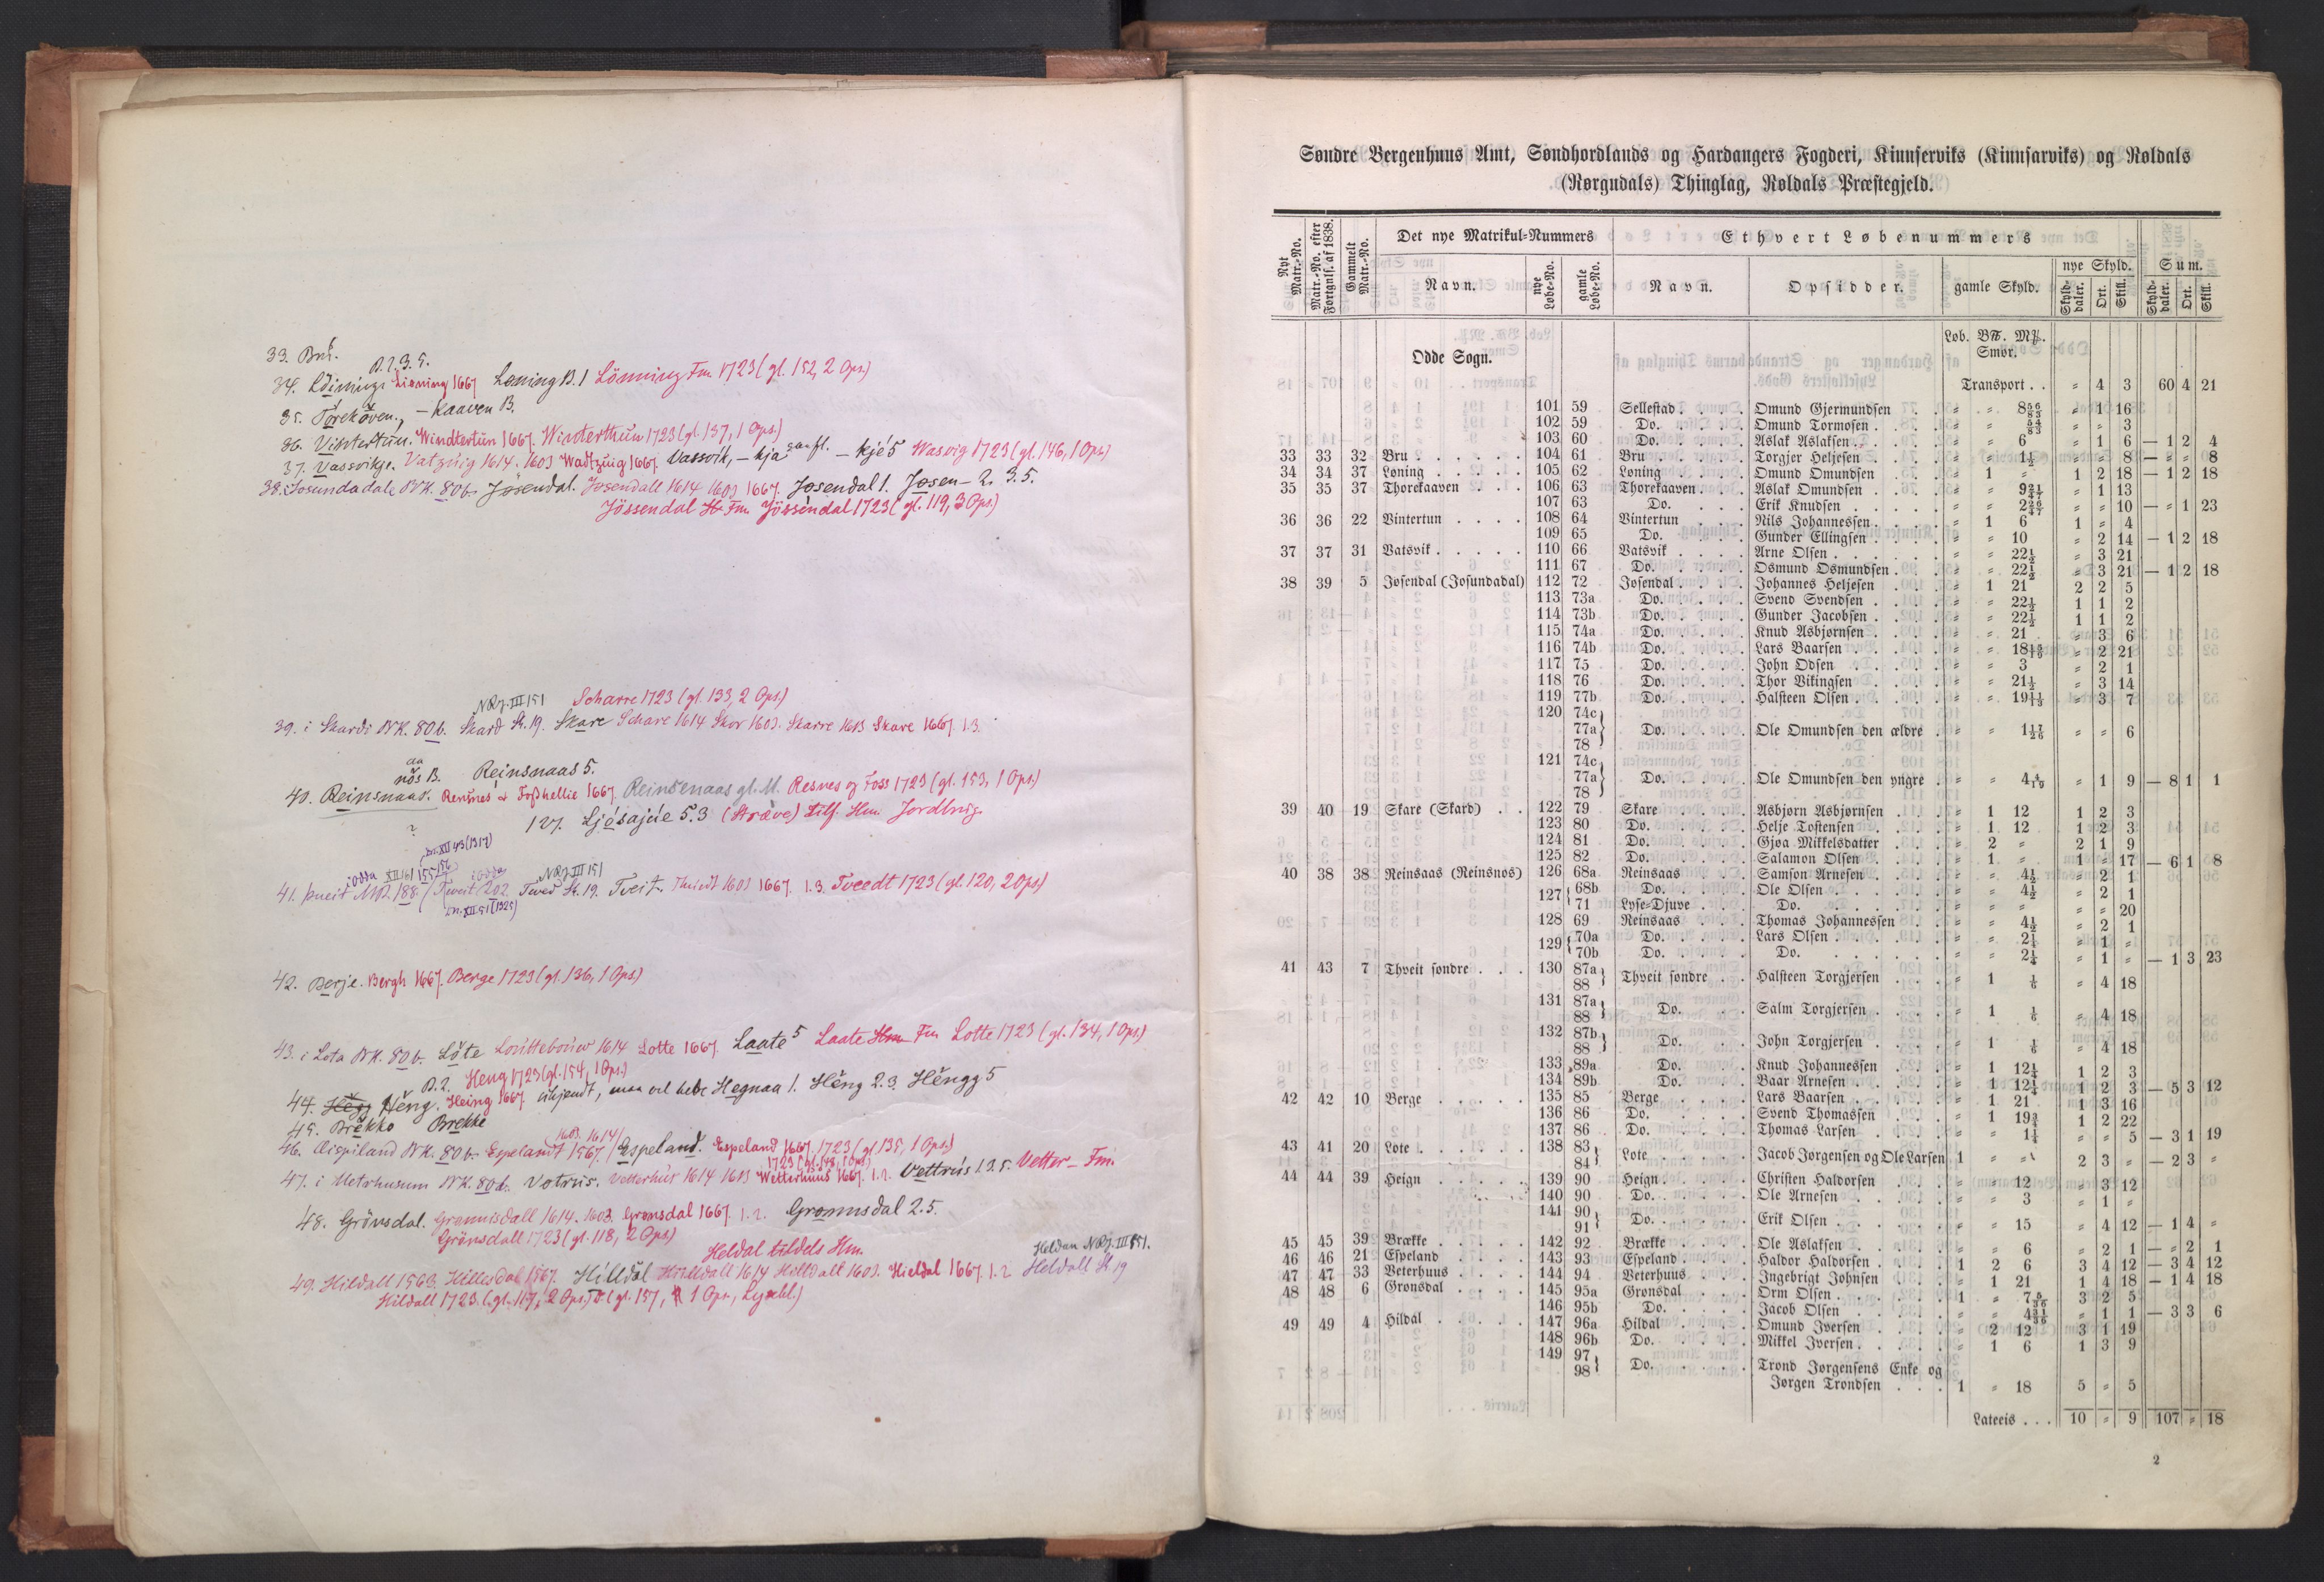 33. Brú.
B. 2. 3. 5.
34. Löining. Lioning 1667 Løning B. 1 Lönning Fm. 1723 (gl. 152, 2 Ops.)
35. Torekåven., – kaaven B.
36. Vintertún. Windtertun 1667. Winterthun 1723 (gl. 137, 1 Ops.)
37. Vassvikje. Vatzuig 1614. 1603 Wadtzuig 1667. Vassvik, – kja – kje 5 Wasvig 1723 (gl. 146, 1 Ops.)
38. i Josundadale BK. 80b. Jösendal. Josendall 1614 1603 1667. Josendal 1. Josen– 2. 3. 5.
Jössendal Fm. Jössendal 1723 (gl. 119, 3 Ops.)
NRJ. III 151 Scharre 1723 (gl. 133, 2 Ops.)
39. i Skardi BK. 80b. Skard St. 19. Skare Schare 1614 Skor 1603. Skarre 1613 Skare 1667. 1. 3.
nås B. Reinsnaas 5.
40. Reinsnaas. Rensnes & Foshellie 1667. Reinsenaas gl. M. Resnes og Foss 1723 (gl. 153, 1 Ops.)
127. Ljósajúe 5. 3 (Stræve) Tilf. Hm. Jordbrug.
?
DN. XII 43 (1317)
i Odda XII 161 155 156 i Odda NRJ III 151
41. þueit MR. 188. / Tweit 202 Twed St. 19. Tveit. Thuedt 1603 1667. 1. 3. Tveedt 1723 (gl. 120, 2 Ops.)
DN. XII 91 (1325)
42. Berje. Bergh 1667. Berge 1723 (gl. 136, 1 Ops.)
43. i Lota BK. 80b. Låte 1614 Lotte 1667. Laate 5 Laate Fm Lotte 1723 (gl. 134, 1 Ops.)
B. 2. Heng 1723 (gl. 154, 1 Ops.)
44. Hěng. Heing 1667. ukjendt, maa vel hede Hegnaa 1. Hěng 2. 3. Hěngg 5
45. Brěkko Brekke
1603. 1614
46. i Espiland BK. 80b. Espelandt 1567. / Espeland. Espeland 1667. 1723 (gl. 135, 1 Ops.)
1723 (gl. 148, 1 Ops.)
47. i Vetrhusum BK. 80b. Vetrús. Vetterhus 1614 1613 Wetterhuus 1667. 1. 2. Vettrús 1. 2. 5. Vetter– Fm.
48. Grönsdal. Grønnisdall 1614. 1603. Grønsdal 1667. 1. 2. Grønnsdal 2. 5.
Grönsdall 1723 (gl. 118, 2 Ops.)
Heldal tildels Hm. Heldan NRJ. III 151.
49. Hildall 1563. Hillesdal 1567. Hilldal Hilldall 1614 Hilldall 1603. Hieldal 1667. 1. 2 Heldall St. 19
Hildall 1723. (gl. 117, 2 Ops.) & (gl. 157, 1 Ops.,
Søndre Bergenhuus Amt, Søndhordlands og Hardangers Fogderi, Kinnserviks (Kinnsarviks) og Røldals
(Rørgudals) Thinglag, Røldals Præstegjeld.
Nyt Matr.-No. Matr.-No. efter Fortgnls. af 1838. Gammelt Matr.-No. Det nye Matrikul-Nummers Ethvert Løbenummers
Navn. nye Løbe-No. gamle Løbe-No. Navn. Opsidder. gamle Skyld. nye Skyld. Sum.
Skylddaler. Ort. Skill. Skylddaler. Ort. Skill.
Løb. B℔. M℔.
Smør.
Odde Sogn.
Transport . . " 4 3 60 4 21
101 59 Sellestad . . . Omund Gjermundsen . . " " 8 56/83 " 1 16
102 59 Do. . . . Omund Tormosen . . . " " 54/83 " " 3
103 60 Do. . . . Aslak Aslaksen . . . " " 6 " 1 6 — 1 2 4
33 33 32 Bru . . . . . 104 61 Bru . . . . Torgjer Heljesen . . . " " 1½ " " 8 — " " 8
34 34 37 Løning . . . . 105 62 Løning . . . Omund Omundsen . . " 1 " 1 2 18 — 1 2 18
35 35 37 Thorekaaven . . . 106 63 Thorekaaven . . . Aslak Omundsen . . . " " 9 21/47 " 1 13
107 63 Do. . . . Erik Knudsen . . . . " " 2 26/47 " " 10 — " 1 23
36 36 22 Vintertun . . . . 108 64 Vintertun . . . Nils Johannessen . . . " 1 6 1 " 4
109 65 Do. . . . Gunder Ellingsen . . . " " 10 " 2 14 — 1 2 18
37 37 31 Vatsvik . . . . . 110 66 Vatsvik . . . Arne Olsen . . . . . " " 22½ " 3 21
111 67 Do. . . . Osmund Osmundsen . . " " 22½ " 3 21 — 1 2 18
38 39 5 Josendal (Josundadal) 112 72 Josendal . . . Johannes Heljesen . . " 1 21 2 2 5
113 73a Do. . . . Svend Svendsen . . . " " 22½ 1 1 2
114 73b Do. . . . Gunder Jacobsen . . . " " 22½ 1 1 2
115 74a Do. . . . Knud Asbjørnsen . . . " " 21 " 3 6
116 74b Do. . . . Lars Baarsen . . . . " " 18 15/19 " 2 21
117 75 Do. . . . John Odsen . . . . " " 3 " 2 1
118 76 Do. . . . Thor Vikingsen . . . " " 21½ " 3 14
119 77b Do. . . . Halsteen Olsen . . . " " 19 11/13 " 3 7
120 74c,
77a Do. . . . Ole Omundsen den ældre . " " 1 17/26 " " 6
78
121 74c,
77a Do. . . . Ole Omundsen den yngre . " " 4 4/19 " 1 9 — 8 1 1
78
39 40 19 Skare (Skard) . . 122 79 Skare . . . Asbjørn Asbjørnsen . . " 1 12 1 2 3
123 80 Do. . . . Helje Tostensen . . . " 1 12 1 2 3
124 81 Do. . . . Gjøa Mikkelsdatter . . " 2 " 2 1 9
125 82 Do. . . . Salamon Olsen . . . " 1 " 1 " 17 — 6 1 8
40 38 38 Reinsaas (Reinsnos) 126 68a Reinsaas . . Samson Arnesen . . . " " 4½ " 2 1
127 68b Do. . . . Ole Olsen . . . . . " " 4½ " 2 1
71 Lyse-Djuve . . . Do. . . . . . " " " " " 20
128 69 Reinsaas . . Thomas Johannessen . . " " 4½ " 2 1
129 70a Do. . . . Lars Olsen . . . . . " " 2¼ " 1 "
70b Do. . . . Do. . . . . . " " 2¼ " 1 " — 1 3 23
41 43 7 Thveit søndre . . . 130 87a,
88 Thveit søndre . . Halsteen Torgjersen . . " 1 ⅙ " 4 18
131 87a,
88 Do. . . . Salm Torgjersen . . . " 1 ⅙ " 4 18
132 87b,
88 Do. . . . John Torgjersen . . . " 1 ⅙ " 4 18
133 89a Do. . . . Knud Johannessen . . " 1 12¼ 1 2 3
134 89b Do. . . . Baar Arnesen . . . . " 1 12¼ 1 2 3 — 5 3 12
42 42 10 Berge . . . . . 135 85 Berge . . . Lars Baarsen . . . . " 1 21 1 3 16
136 86 Do. . . . Svend Thomassen . . " 1 19¾ 1 2 22
137 86 Do. . . . Thomas Larsen . . . " " 1¼ " " 5 — 3 1 19
43 41 20 Lote . . . . . 138 83,
84 Lote . . . . Jacob Jørgensen og Ole Larsen 1 " " 2 3 " — 2 3 "
44 44 39 Heign . . . . . 139 90 Heign . . . . Christen Haldorsen . . " " 12 " 3 12
140 90 Do. . . . Ole Arnesen . . . . " " 3 " 1 "
141 90,
91 Do. . . . Erik Olsen . . . . . " " 15 " 4 12 — 1 4 "
45 45 39 Brække . . . . 142 92 Brække . . . Ole Aslaksen . . . . " " 6 " 2 1 — " 2 1
46 46 21 Espeland . . . . 143 93 Espeland . . . Haldor Haldorsen . . . 1 2 6 3 4 12 — 3 4 12
47 47 33 Veterhuus . . . . 144 94 Veterhuus . . . Ingebrigt Johnsen . . " 1 21 1 4 18 — 1 4 18
48 48 6 Grønsdal . . . . 145 95a Grønsdal . . . Orm Olsen . . . . . 1 " 7 5/36 3 2 5
146 95b Do. . . . Jacob Olsen . . . . " " 4 31/36 " 1 1 — 3 3 6
49 49 4 Hildal . . . . . 147 96a Hildal . . . . Omund Iversen . . . " 2 12 3 1 19
148 96b Do. . . . Mikkel Iversen . . . " 1 6 1 3 9
149 97,
98 Do. . . . Trond Jørgensens Enke og
Jørgen Trondsen . . . 1 " 18 5 " 5
Lateris . . . 10 " 9 107 " 18
2